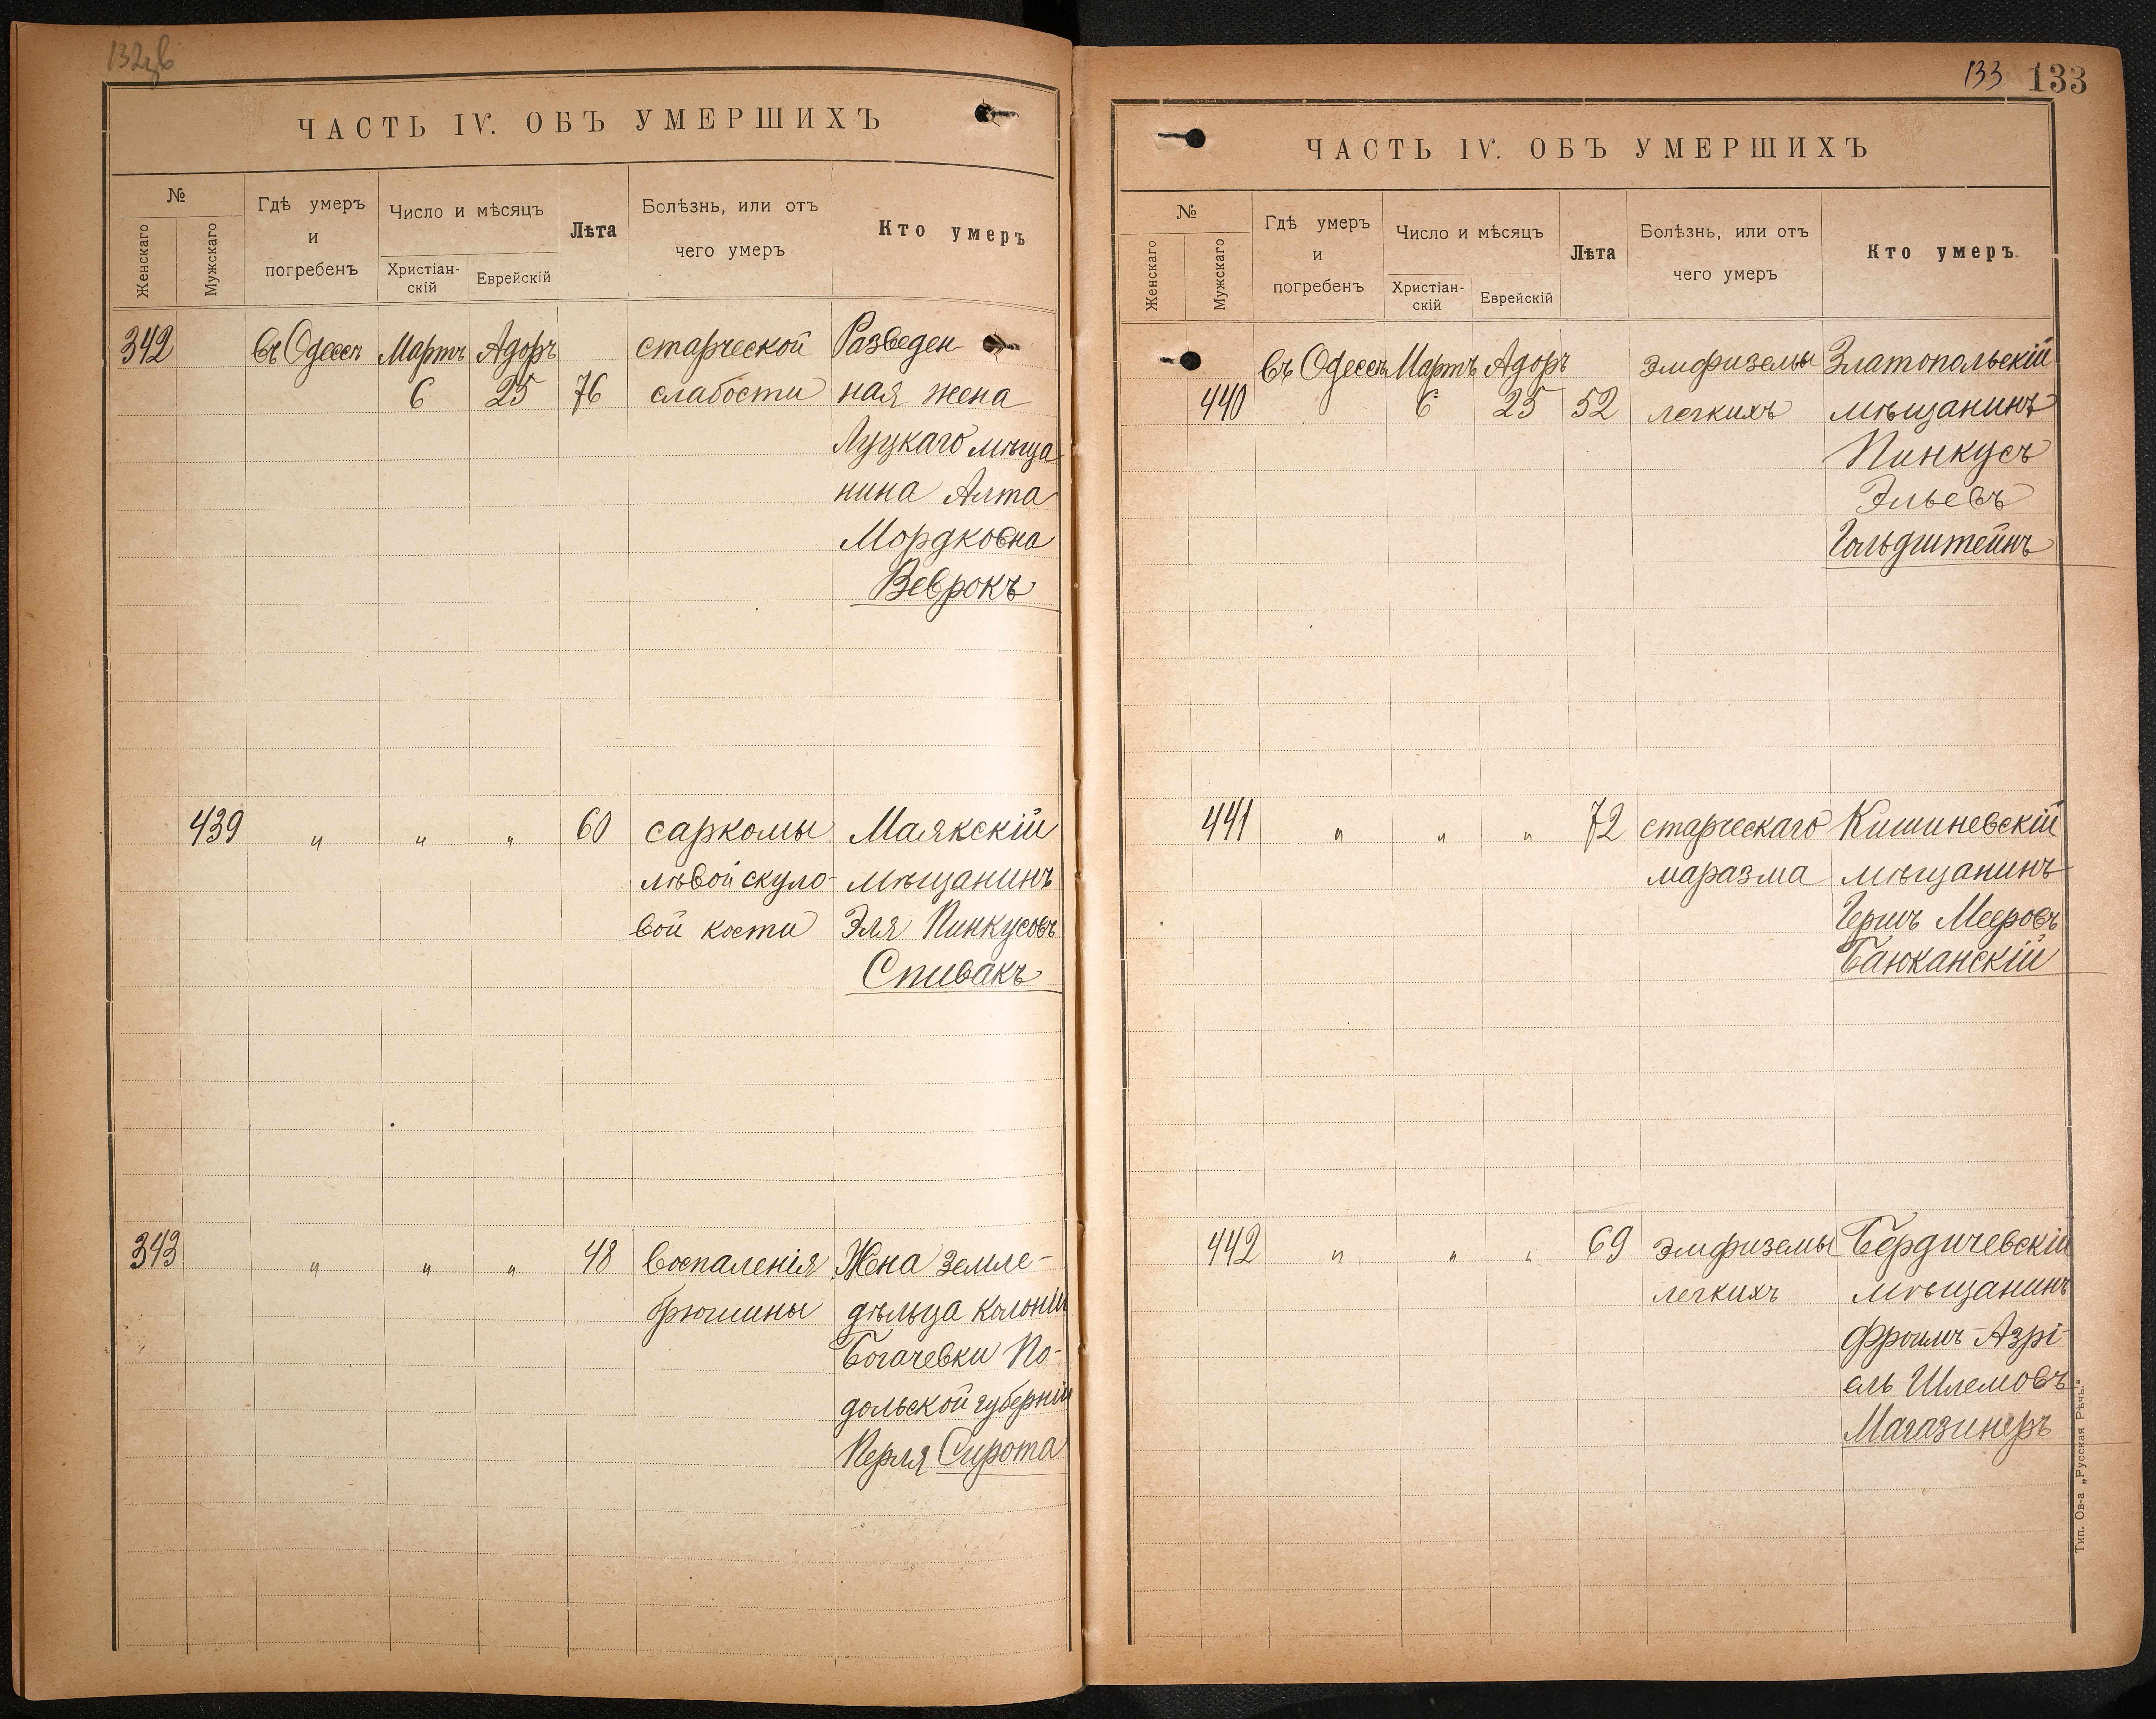 132об
ЧАСТЬ IV. ОБЪ УМЕРШИХЪ
№
Женскаго
Мужскаго
Гдѣ умеръ
и
погребенъ
Число и мѣсяцъ
Христіан-
скій
Еврейскій
Лѣта
Болѣзнь, или отъ
чего умеръ
Кто умеръ
342 въ Одессѣ Мартъ Адоръ старческой Разведен
6 25 76 слабости ная жена
Луцкаго мѣща
нина Алта
Мордковна
Веврокъ
439 " " " 60 саркомы Маякскій
лѣвой скуло- мѣщанинъ
вой кости Эля Пинкусовъ
Спивакъ
343 " " " 48 воспаленія Жена земле-
брюшины дѣльца колоніи
Богачевки По-
дольской губерніи
Перля Сирота
133 133
ЧАСТЬ IV. ОБЪ УМЕРШИХЪ
№
Женскаго
Мужскаго
Гдѣ умеръ
и
погребенъ
Число и мѣсяцъ
Христіан-
скій
Еврейскій
Лѣта
Болѣзнь, или отъ
чего умеръ
Кто умеръ.
въ Одессѣ Мартъ Адоръ эмфиземы Златопольскій
440 6 25 52 легкихъ мѣщанинъ
Пинкусъ
Эльевъ
Гольдштейнъ
441 " " " 72 старческаго Кишиневскій
маразма мѣщанинъ
Гершъ Мееровъ
Баюканскій
442 " " " 69 эмфиземы Бердичевскій
легкихъ мѣщанинъ
Фроимъ-Азрі-
ель Шлемовъ
Магазинеръ
Тип. Ов-а „Русская Рѣчь."